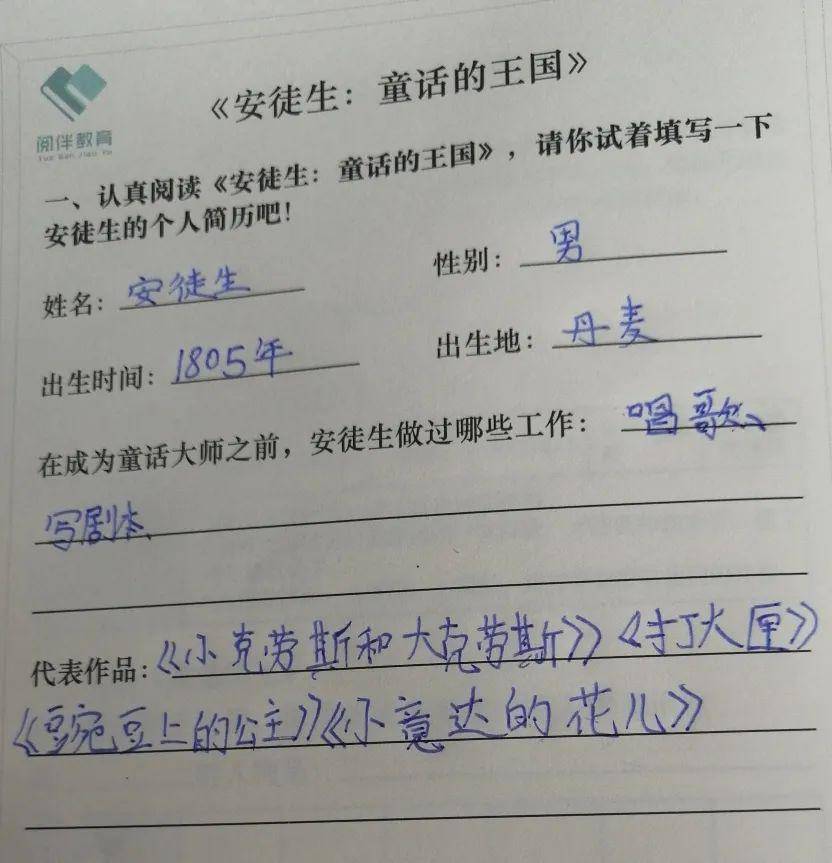 《安徒生：童话的王国》
阅伴教育
Yue Ban Jiao Yu
一、认真阅读《安徒生：童话的王国》，请你试着填写一下
安徒生的个人简历吧！
姓名：安徒生 性别：男
出生时间：1805年 出生地：丹麦
在成为童话大师之前，安徒生做过哪些工作：唱歌、
写剧本、
代表作品：《小克劳斯和大克劳斯》《打火匣》
《豆豌豆上的公主》《小意达的花儿》